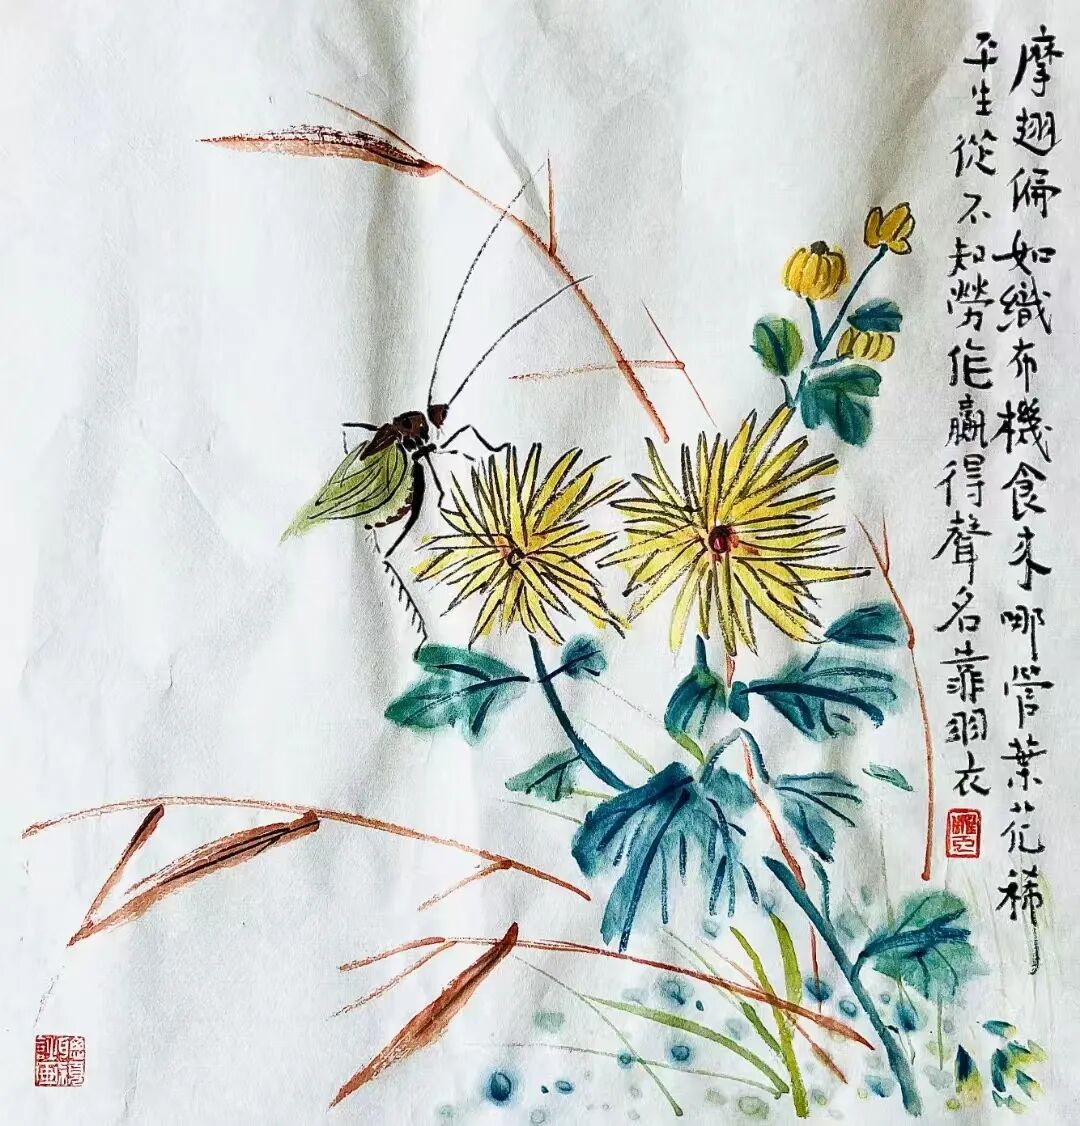 摩翅偏如織布機食来哪管葉花稀
平生從不知勞作贏得聲名靠羽衣